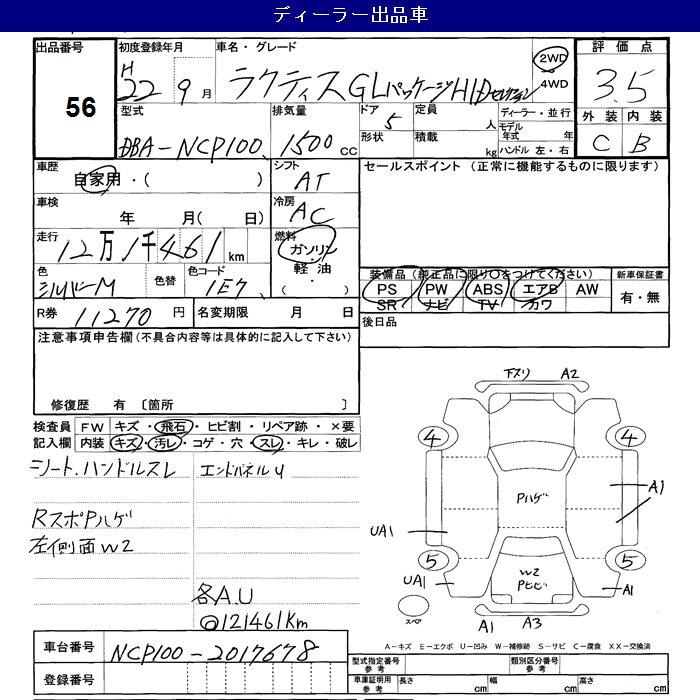 ディーラー出品車
出品番号 初度登録年月 車名・グレード 評価点
56
H22 9月 ラクティス GLパッケージHIDセレクション 2WD 4WD 3.5
型式 排気量 ドア 定員 ディーラー・並行 外装 内装
DBA-NCP100 1500cc 5 人 モデル年式 年 C B
形状 積載 kg ハンドル 左・右
車歴 シフト セールスポイント(正常に機能するものに限ります)
自家用・( ) AT
車検 冷房
年 月( 日) AC
走行 燃料
12万1千461km ガソリン・軽油・( )
色 色替 色コード 装備品(純正品に限り○をつけてください) 新車保証書
シルバーM 1E7 PS PW ABS エアB AW 有・無
SR ナビ TV カワ
R券 11270円 名変期限 月 日 後日品
注意事項申告欄(不具合内容等は具体的に記入して下さい)
修復歴 有 〔箇所 〕
検査員 FW キズ・飛石・ヒビ割・リペア跡・×要
記入欄 内装 キズ・汚レ・コゲ・穴・スレ・キレ・破レ
シート、ハンドルスレ エンドパネルU
RスポPハゲ
左側面W2
各A.U
@121461Km
下スリ A2
4 4
Pハゲ A1
UA1
5 5
UA1 W2 Pヒビ A1
スペア A1 A3
A-キズ E-エクボ U-凹み W-補修跡 S-サビ C-腐食 XX-交換済
車台番号 NCP100-2017678
型式指定番号 参考 類別区分番号 参考
登録番号 車庫証明用 参考 長さ cm 幅 cm 高さ cm